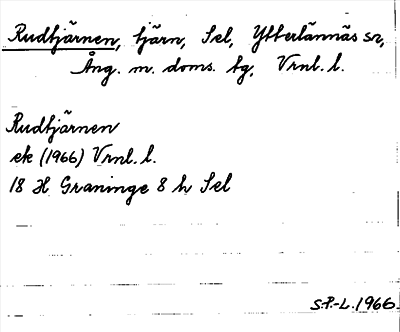 Rudtjärnen, tjärn, Sel, Ytterlännäs sn,
Ång. m. doms. tg, Vrnl. l.
Rudtjärnen
ek (1966) Vrnl. l.
18 H Graninge 8 h Sel
S.P.-L. 1966